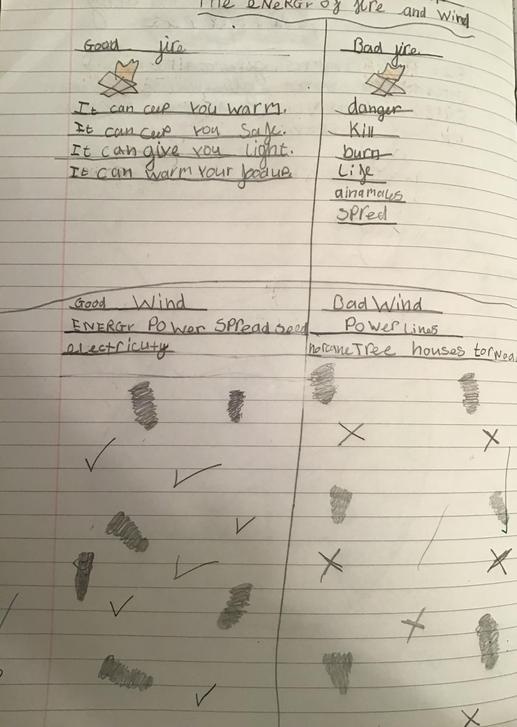 The ENERGY Of fire and Wind
Good fire
It can ceep you warm.
It can ceep you Safe.
It can give you light.
It can warm your foodue.
Bad fire
danger
Kill
burn
Life
ainamals
Spred
Good Wind
ENERGY POWer SPread seed
electricuty
Bad Wind
Power Lines
Tree houses